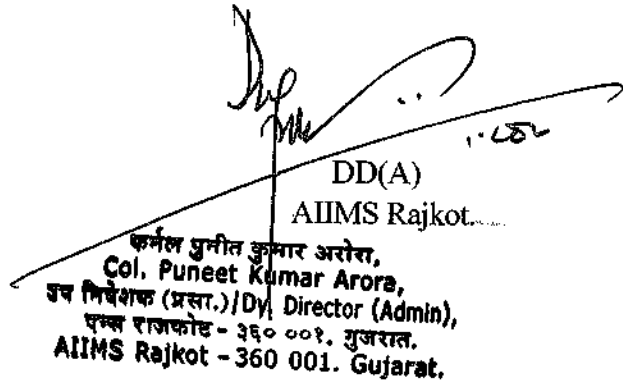 DD(A)
AIIMS Rajkot.
कर्नल पुनीत कुमार अरोरा,
Col. Puneet Kumar Arora,
उप निदेशक (प्रशा.)/Dy. Director (Admin),
एम्स राजकोट - ३६० ००१. गुजरात.
AIIMS Rajkot - 360 001. Gujarat.